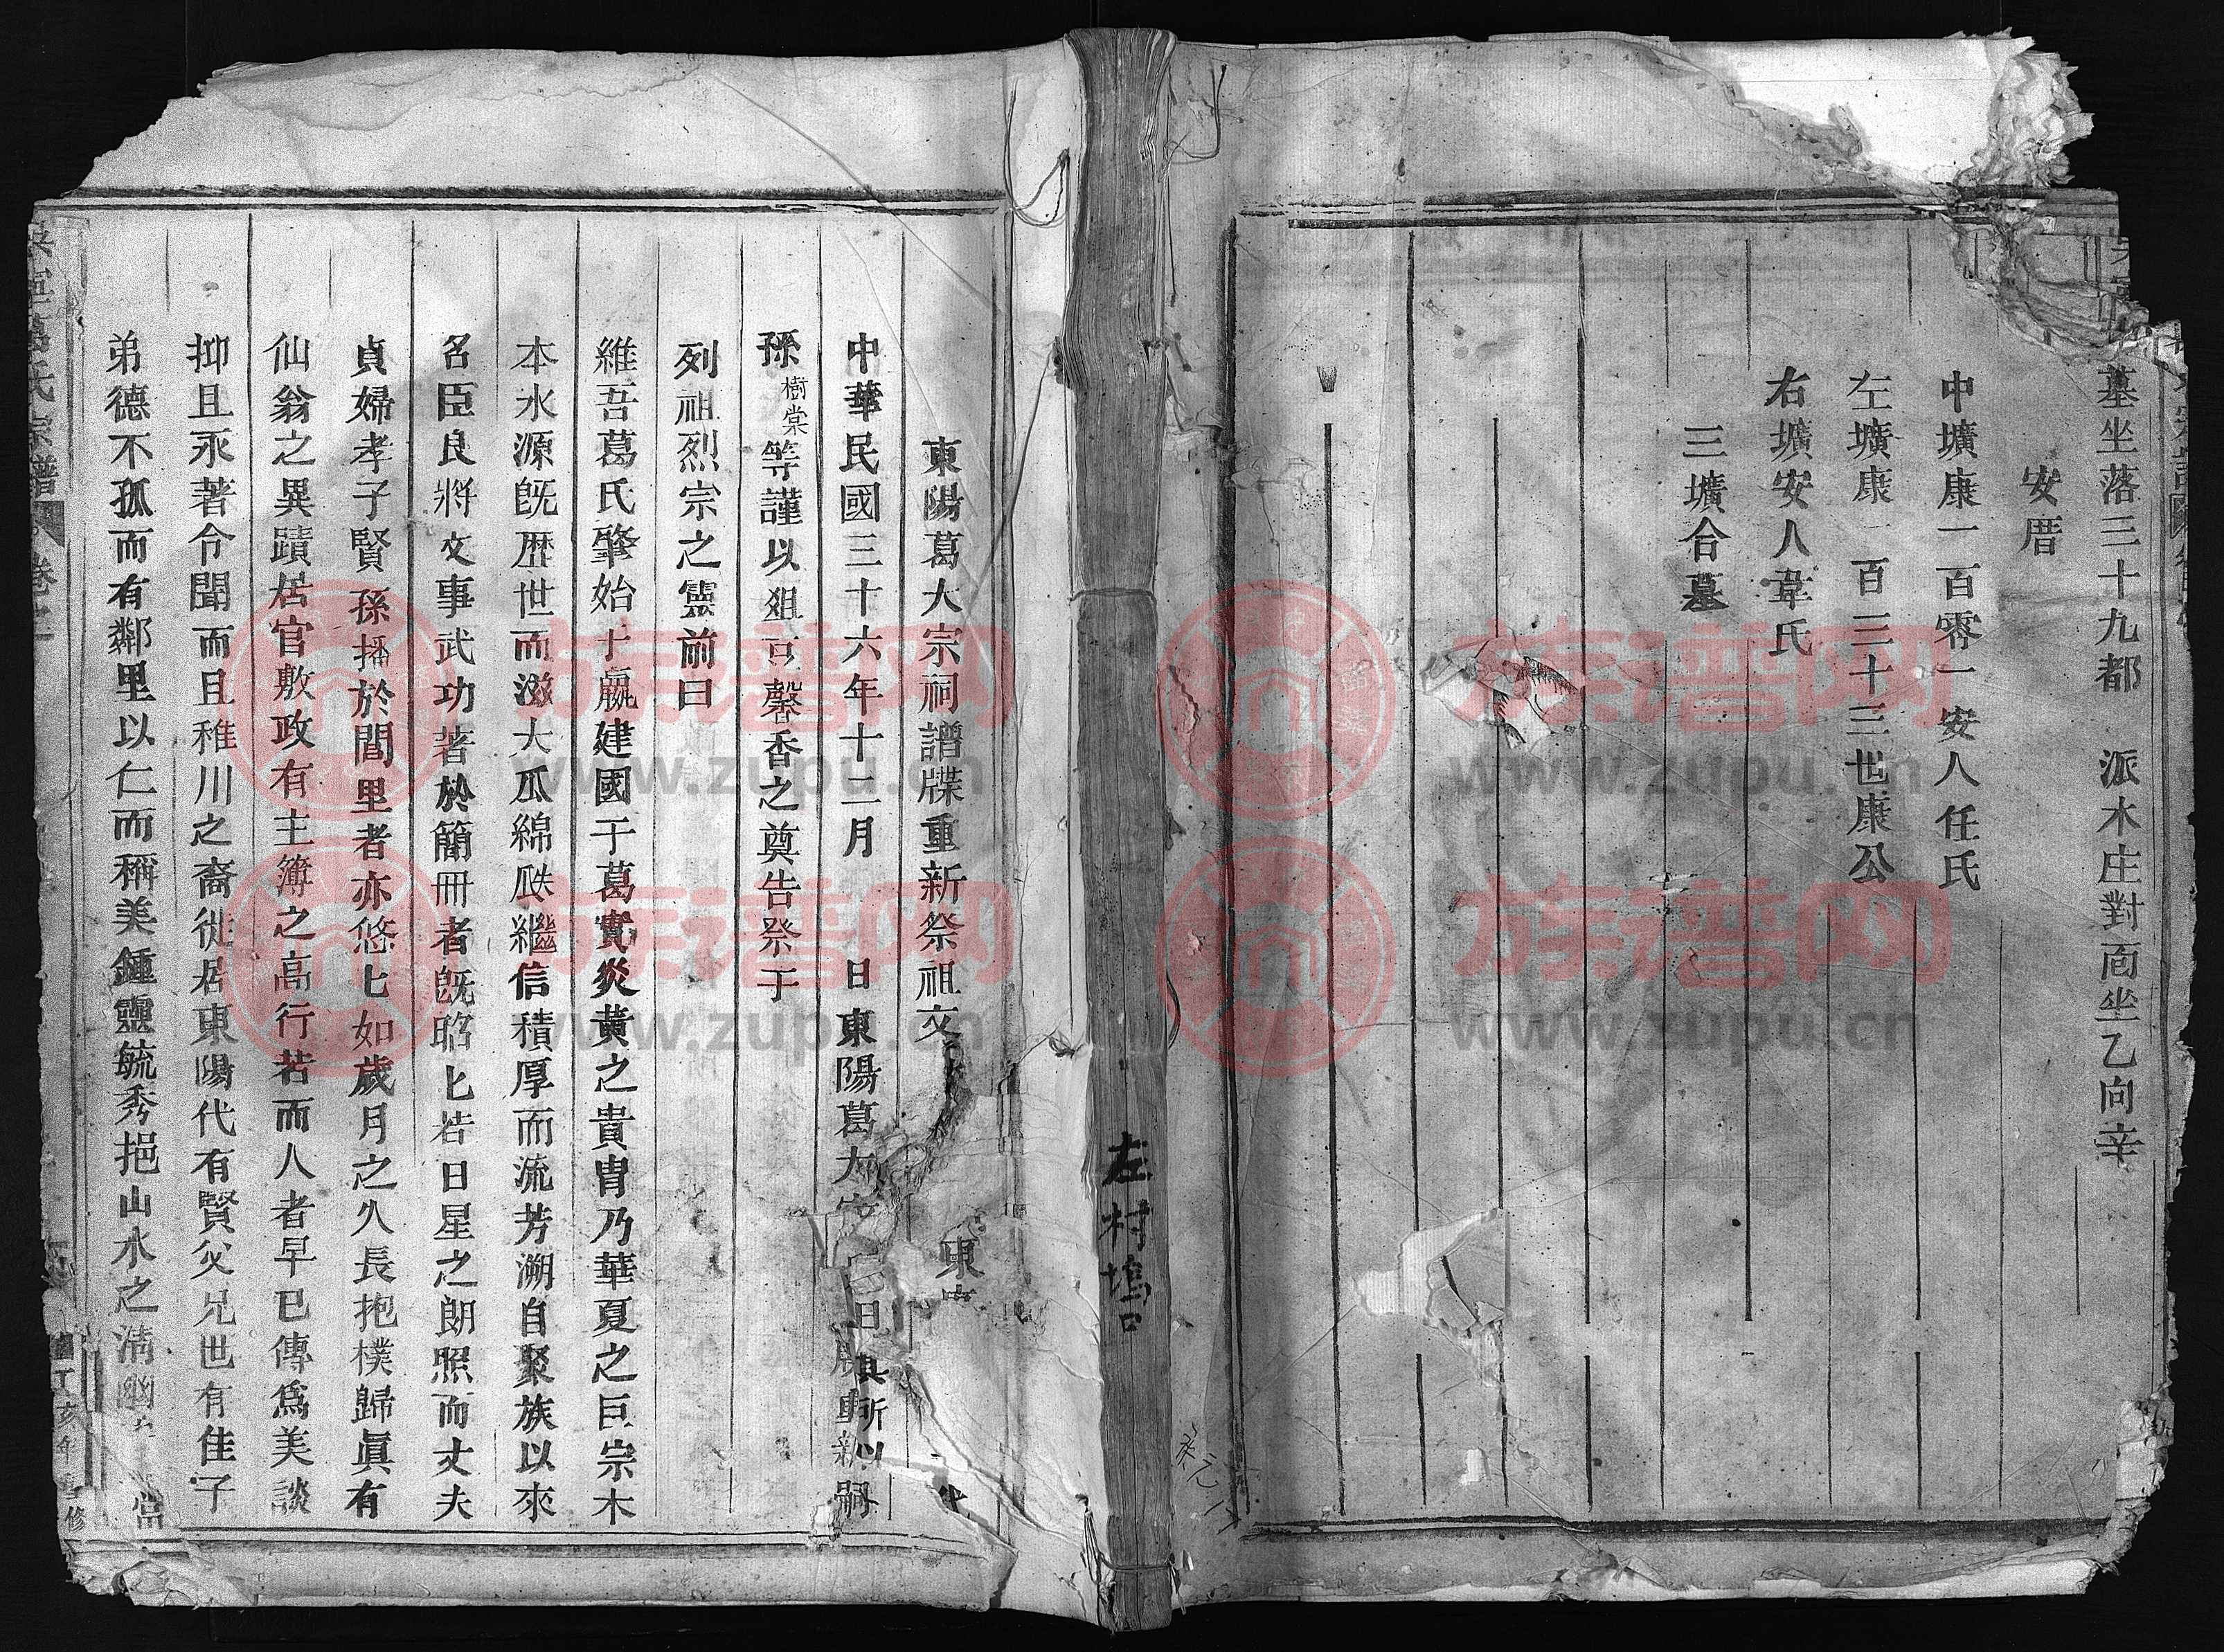 墓坐落三十九都 派木庄對面坐乙向辛
安厝
中壙康一百零一安人任氏
左壙康一百三十三世康公
右壙安人韋氏
三壙合墓
左村塢口
東陽葛大宗祠譜牒重新祭祖文
中華民國三十六年十二月 日東陽葛大
孫樹棠等謹以俎 馨香之奠告祭于
列祖烈宗之靈前曰
維吾葛氏肇始于嬴建國于葛實炎黃之貴冑乃華夏之巨宗木
本水源旣歷世而滋大瓜綿瓞繼信積厚而流芳溯自聚族以來
名臣良將文事武功著於簡冊者旣昭匕若日星之朗照而丈夫
貞婦孝子賢孫播於閭里者亦悠匕如歲月之久長抱樸歸眞有
仙翁之異蹟居官敷政有主簿之高行若而人者早已傳爲美談
抑且永著令聞而且稚川之裔徙居東陽代有賢父兄世有佳子
弟德不孤而有鄰里以仁而稱美鍾靈毓秀挹山水之清幽
氏宗譜
卷
亥年重修
族谱网
www.zupu.cn
族谱网
www.zupu.cn
族谱网
www.zupu.cn
族谱网
www.zupu.cn